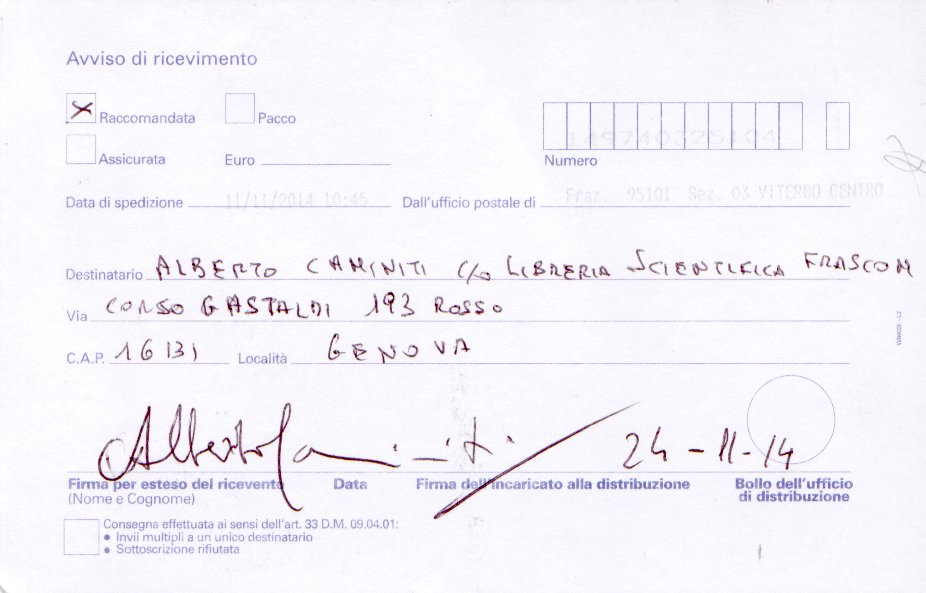 Avviso di ricevimento
Raccomandata Pacco
Assicurata Euro Numero
Data di spedizione 11/11/2014 10:45 Dall'ufficio postale di Fraz. 95101 Sez. 03 VITERBO CENTRO
Destinatario ALBERTO CAMINITI c/o LIBRERIA SCIENTIFICA FRASCOM
Via CORSO GASTALDI 193 ROSSO
C.A.P. 16131 Località GENOVA
Alberto Caminiti 24-11-14
Firma per esteso del ricevente Data Firma dell'incaricato alla distribuzione Bollo dell'ufficio
(Nome e Cognome) di distribuzione
Consegna effettuata ai sensi dell'art. 33 D.M. 09.04.01:
• Invii multipli a un unico destinatario
• Sottoscrizione rifiutata